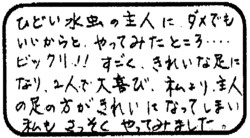 ひどい水虫の主人に、ダメでも
いいからと、やってみたところ・・・・
ビックリ!! すごく、きれいな足に
なり、2人で大喜び、私より、主人
の足の方がきれいになってしまい
私もさっそくやってみました。